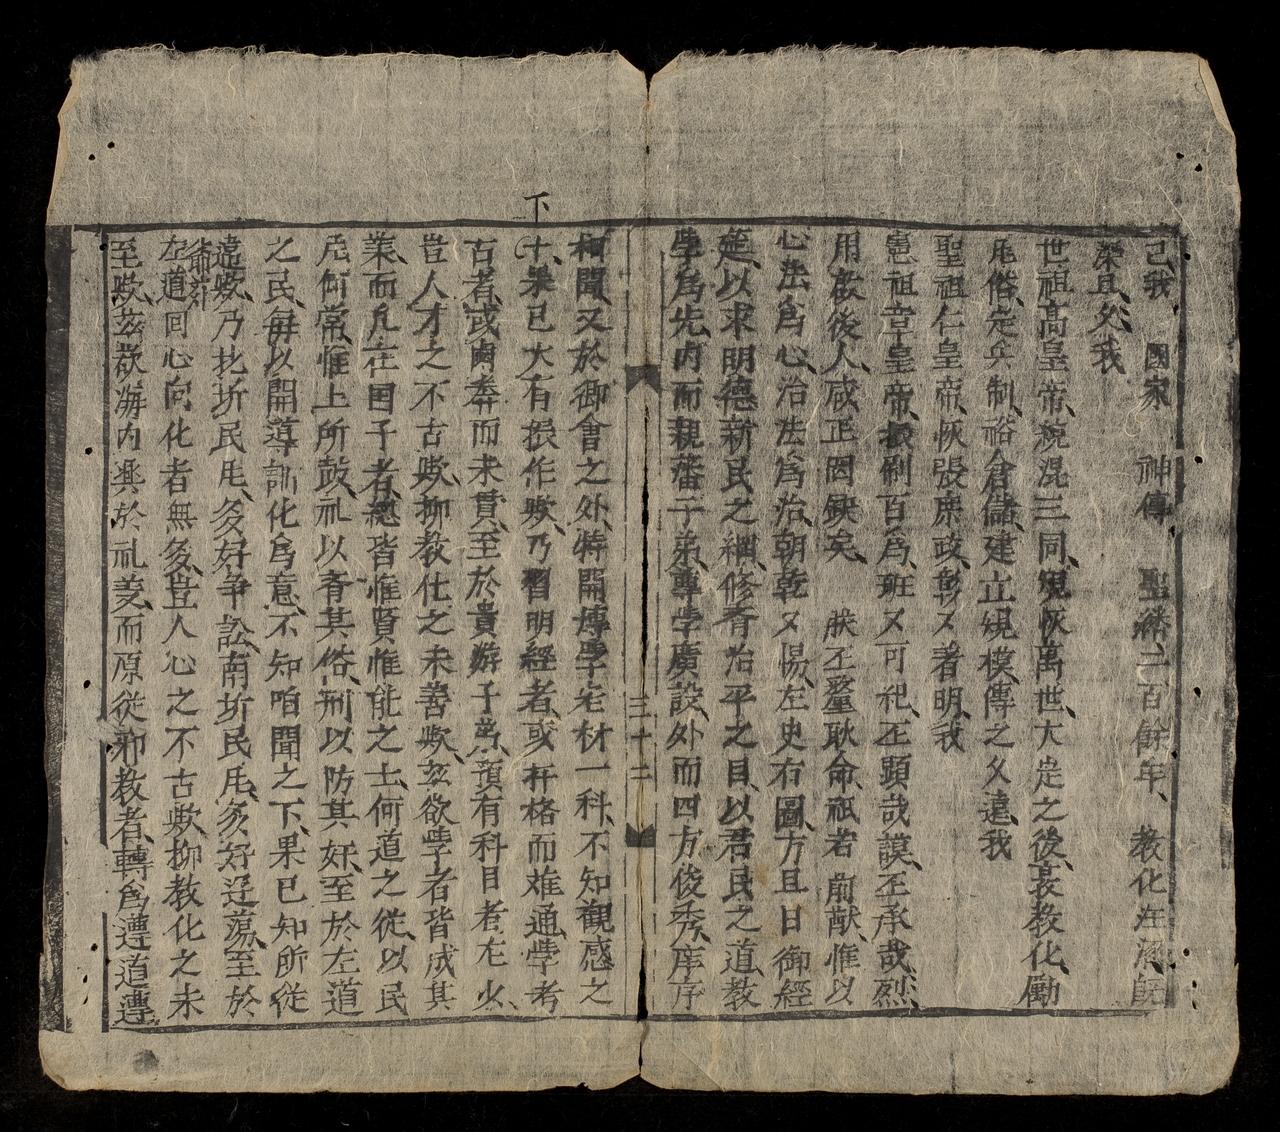 己我 國家 神傳 聖繼二百餘年教化汪濊既
深且久我
世祖高皇帝混混三同規恢萬世大定之後哀教化勵
風俗定兵制裕倉儲建立規模傳之久遠我
聖祖仁皇帝恢張庶政彰又著明我
憲祖章皇帝振刷百爲班又可祀丕顯哉謨丕承哉烈
用啟後人咸正罔缺矣 朕丕釐耿命祇若前猷惟以
心法爲心治法爲治朝乾夕惕左史右圖方且日御經
筵以求明德新民之綱修齊治平之目以君民之道教
學爲先內而親藩子弟專學廣設外而四方俊秀庠序
三十二
相聞又於御會之外特開博學宏材一科不知觀感之
下
十果已大有振作歟乃習明經者或扞格而难通學考
古者或鹵莽而未貫至於貴游子弟預有科目者尤少
豈人才之不古歟抑教仕之未善歟玆欲學者皆成其
業而凡在国子者總皆惟賢惟能之士何道之從以民
風何常惟上所鼓礼以齊其俗刑以防其奸至於左道
之民每以開導訓化爲意不知咱聞之下果已知所從
違歟乃北圻民風多好争訟南圻民風多好逞蕩至於
爺蘇
左道回心向化者無多豈人心之不古歟抑教化之未
至歟玆欲海内興於礼義而原從邪教者轉爲遵道遵